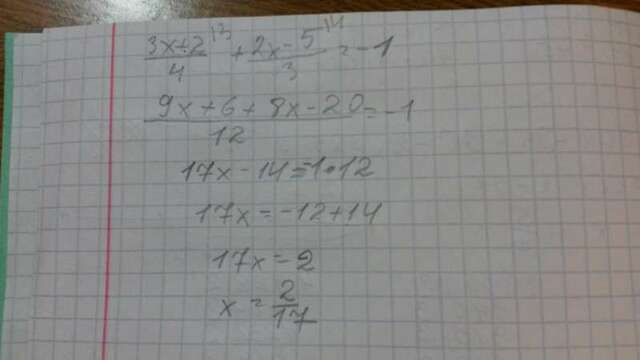 (3x+2)/4 ^|3 + (2x-5)/3 ^|4 = -1
(9x+6+8x-20)/12 = -1
17x-14=-1·12
17x=-12+14
17x=2
x=2/17